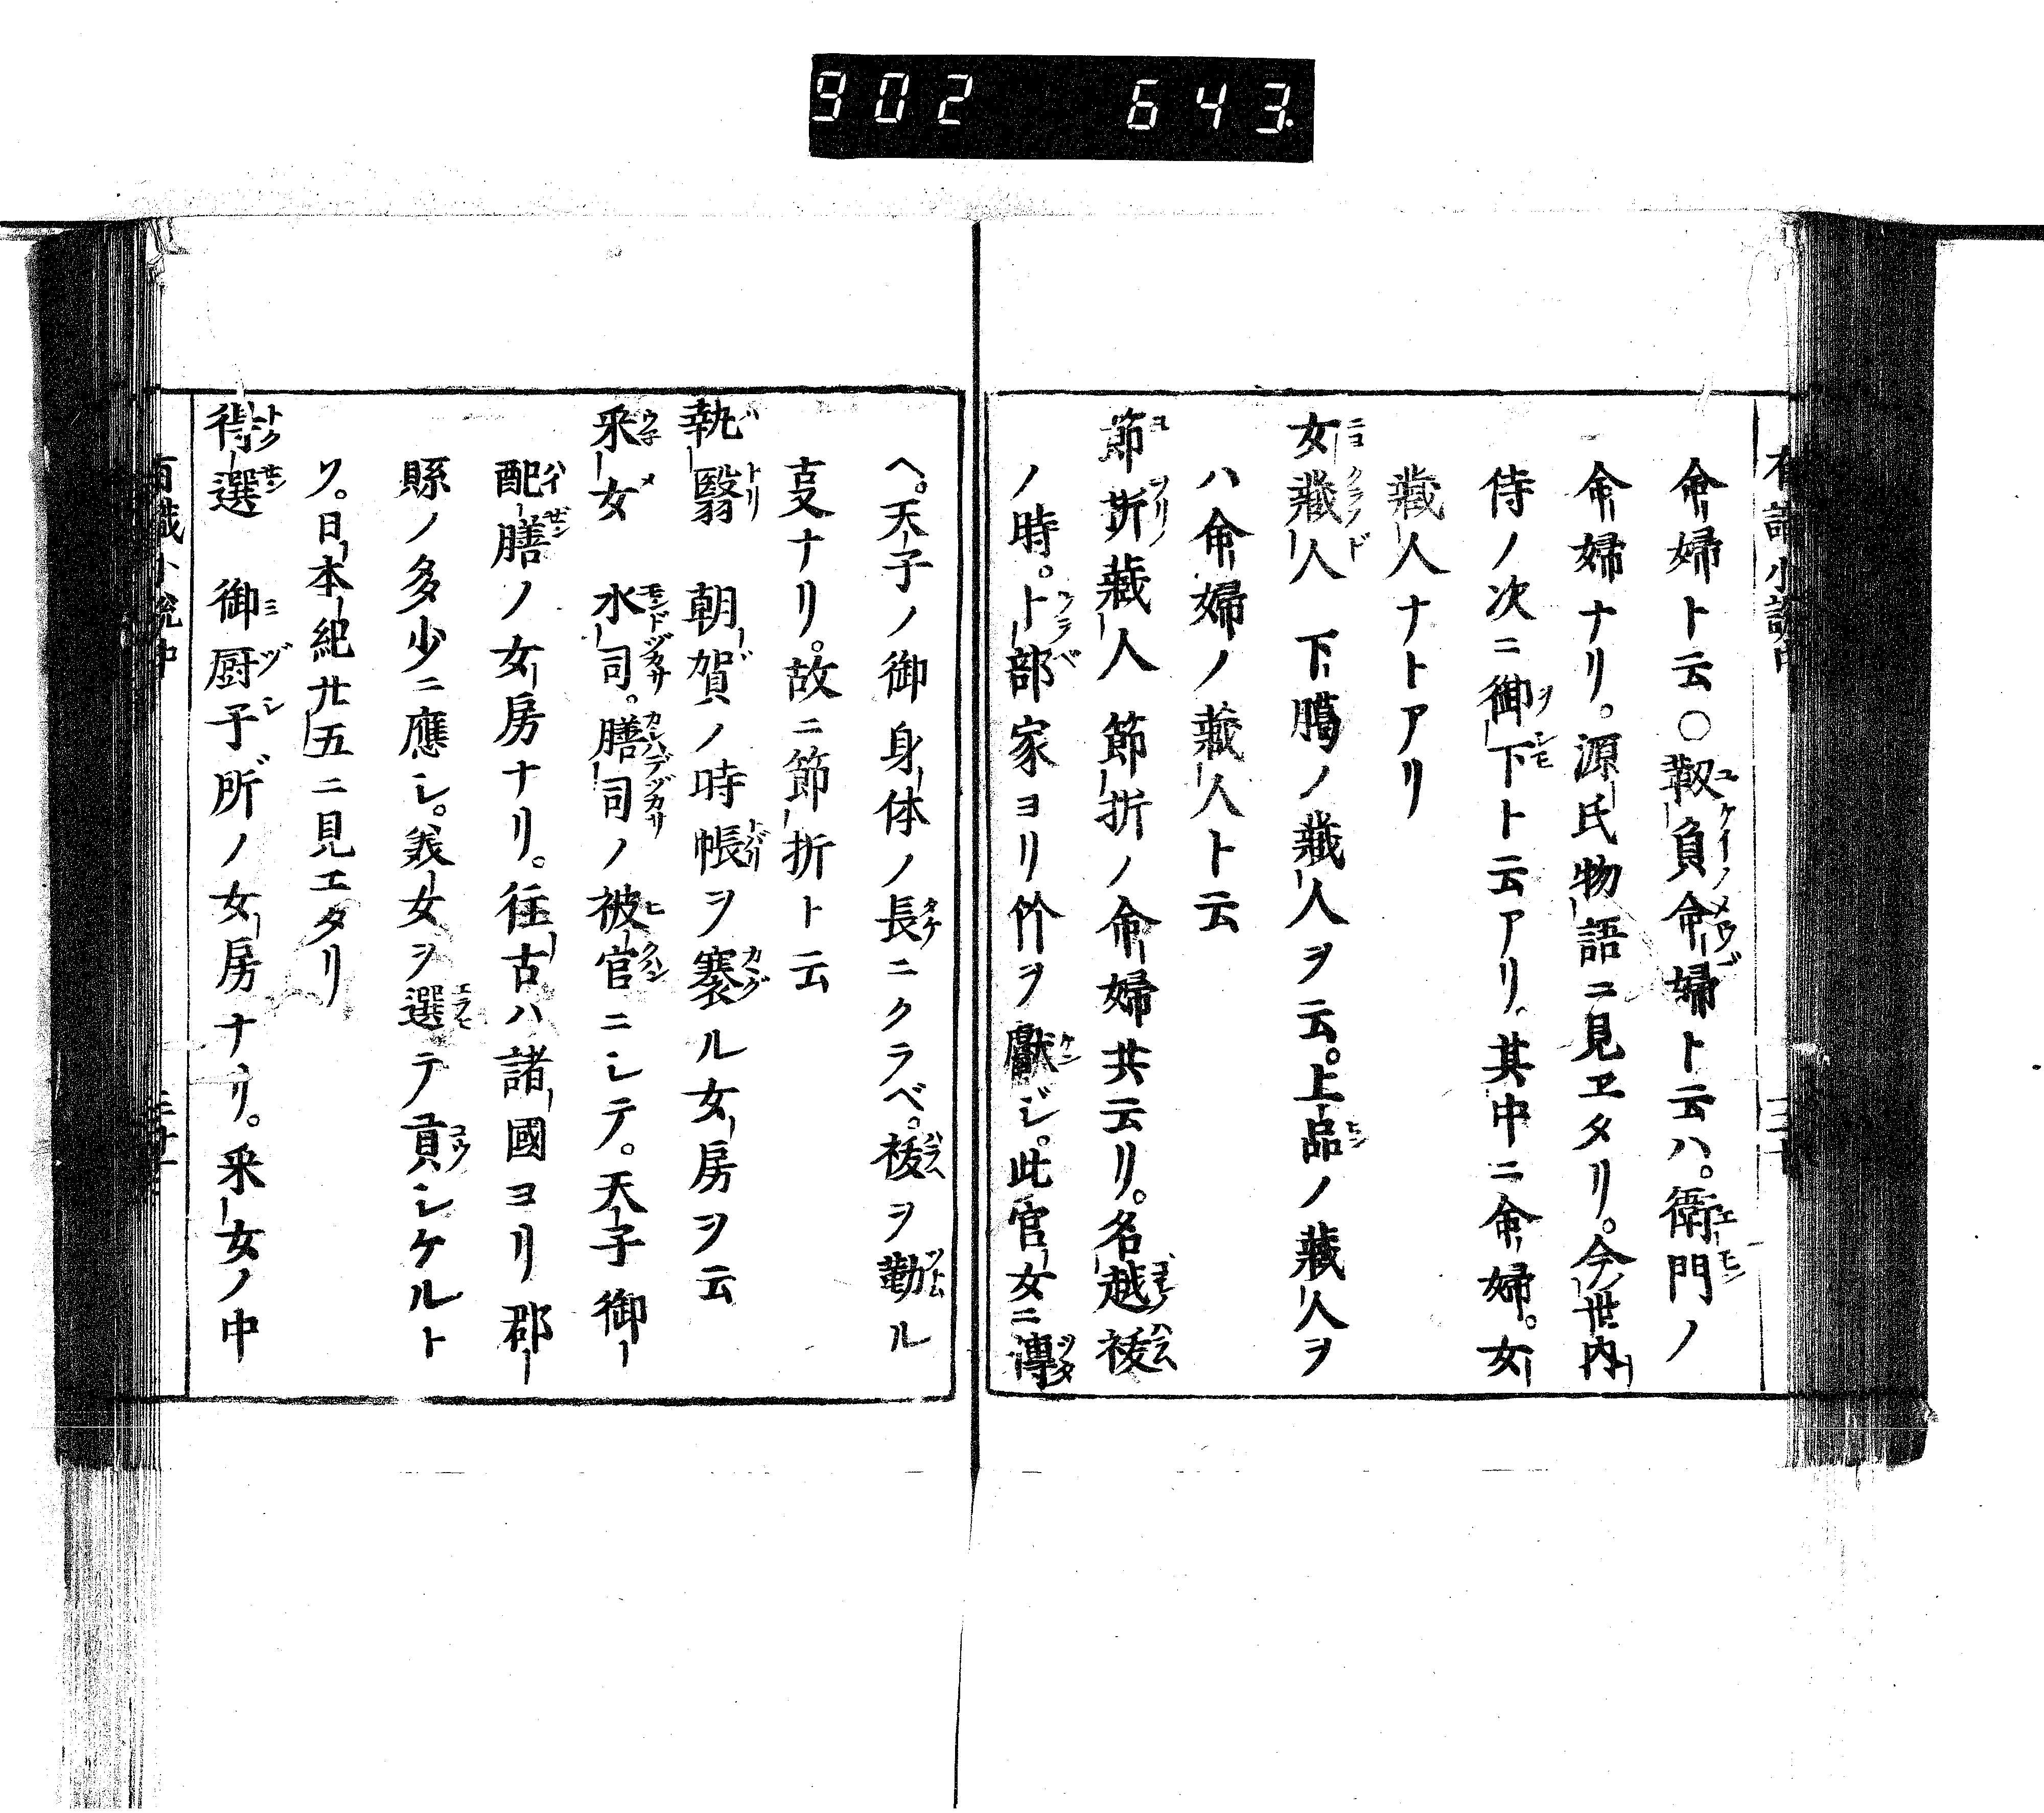 902 643.
命婦ト云○靫負命婦ト云ハ。衛門ノ
命婦ナリ。源氏物語ニ見ヱタリ。今世内
侍ノ次ニ御下ト云アリ。其中ニ命婦。女
藏人ナトアリ
女藏人 下﨟ノ藏人ヲ云。上品ノ藏人ヲ
ハ命婦ノ藏人ト云
節折藏人 節折ノ命婦共云リ。名越祓
ノ時。卜部家ヨリ竹ヲ獻ジ。此官女ニ傳
ヘ。天子ノ御身体ノ長ニクラベ。祓ヲ勤ル
叓ナリ。故ニ節折ト云
執翳 朝賀ノ時帳ヲ褰ル女房ヲ云
采女 水司。膳司ノ被官ニシテ。天子御
配膳ノ女房ナリ。往古ハ諸國ヨリ郡
縣ノ多少ニ應シ。美女ヲ選テ貢シケルト
ソ。日本紀廿五ニ見エタリ
得選 御厨子所ノ女房ナリ。采女ノ中